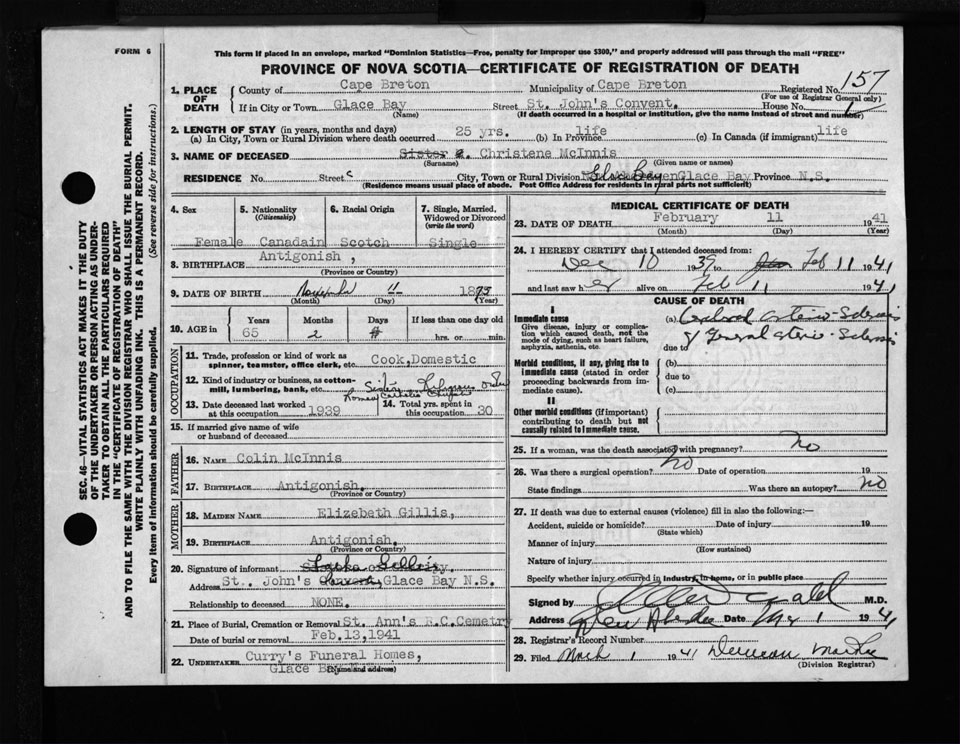 FORM 6
This form if placed in an envelope, marked "Dominion Statistics—Free, penalty for improper use $300," and properly addressed will pass through the mail "FREE"
PROVINCE OF NOVA SCOTIA—CERTIFICATE OF REGISTRATION OF DEATH
SEC. 46—VITAL STATISTICS ACT MAKES IT THE DUTY
OF THE UNDERTAKER OR PERSON ACTING AS UNDER-
TAKER TO OBTAIN ALL THE PARTICULARS REQUIRED
IN THE "CERTIFICATE OF REGISTRATION OF DEATH"
AND TO FILE THE SAME WITH THE DIVISION REGISTRAR WHO SHALL ISSUE THE BURIAL PERMIT.
WRITE PLAINLY WITH UNFADING INK. THIS IS A PERMANENT RECORD.
Every item of information should be carefully supplied. (See reverse side for instructions.)
1. PLACE OF DEATH
County of Cape Breton Municipality of Cape Breton Registered No. 157
(For use of Registrar General only)
If in City or Town Glace Bay Street St. John's Convent. House No.
(Name) (If death occurred in a hospital or institution, give the name instead of street and number)
2. LENGTH OF STAY (in years, months and days)
(a) In City, Town or Rural Division where death occurred 25 yrs. (b) In Province life (c) In Canada (if immigrant) life
3. NAME OF DECEASED Sister Christene McInnis
(Surname) (Given name or names)
RESIDENCE No. Street City, Town or Rural Division Glace Bay Province N.S.
(Residence means usual place of abode. Post Office Address for residents in rural parts not sufficient)
4. Sex Female
5. Nationality (Citizenship) Canadain
6. Racial Origin Scotch
7. Single, Married, Widowed or Divorced (write the word) Single
8. BIRTHPLACE Antigonish ,
(Province or Country)
9. DATE OF BIRTH November 11 1875
(Month) (Day) (Year)
10. AGE in Years 65 Months 2 Days If less than one day old hrs. or min.
OCCUPATION
11. Trade, profession or kind of work as spinner, teamster, office clerk, etc. Cook,Domestic
12. Kind of industry or business, as cotton-mill, lumbering, bank, etc. Sister Religious Order
Roman Catholic
13. Date deceased last worked at this occupation 1939
14. Total yrs. spent in this occupation 30
15. If married give name of wife or husband of deceased
FATHER
16. NAME Colin McInnis
17. BIRTHPLACE Antigonish.
(Province or Country)
MOTHER
18. MAIDEN NAME Elizebeth Gillis,
19. BIRTHPLACE Antigonish.
(Province or Country)
20. Signature of informant
Address St. John's Convent, Glace Bay N.S.
Relationship to deceased NONE.
21. Place of Burial, Cremation or Removal St. Ann's R.C.Cemetry
Date of burial or removal Feb.13,1941
22. UNDERTAKER Curry's Funeral Homes,
Glace Bay
(Name and address)
MEDICAL CERTIFICATE OF DEATH
23. DATE OF DEATH February 11 1941
(Month) (Day) (Year)
24. I HEREBY CERTIFY that I attended deceased from:
Dec 10 1939 to Feb 11 1941
and last saw her alive on Feb 11 1941
CAUSE OF DEATH
I
Immediate cause
Give disease, injury or complication which caused death, not the mode of dying, such as heart failure, asphyxia, asthenia, etc.
(a) Cerebral Arterio-Sclerosis
& General Arterio Sclerosis
due to
Morbid conditions, if any, giving rise to immediate cause (stated in order proceeding backwards from immediate cause).
(b)
due to
(c)
II
Other morbid conditions (if important) contributing to death but not causally related to immediate cause.
25. If a woman, was the death associated with pregnancy? No
26. Was there a surgical operation? No Date of operation 19
State findings Was there an autopsy? No
27. If death was due to external causes (violence) fill in also the following:—
Accident, suicide or homicide? Date of injury 19
(State which)
Manner of injury
(How sustained)
Nature of injury
Specify whether injury occurred in industry, in home, or in public place
Signed by M.D.
Address Date 1 1941
28. Registrar's Record Number
29. Filed March 1 1941 Duncan
(Division Registrar)